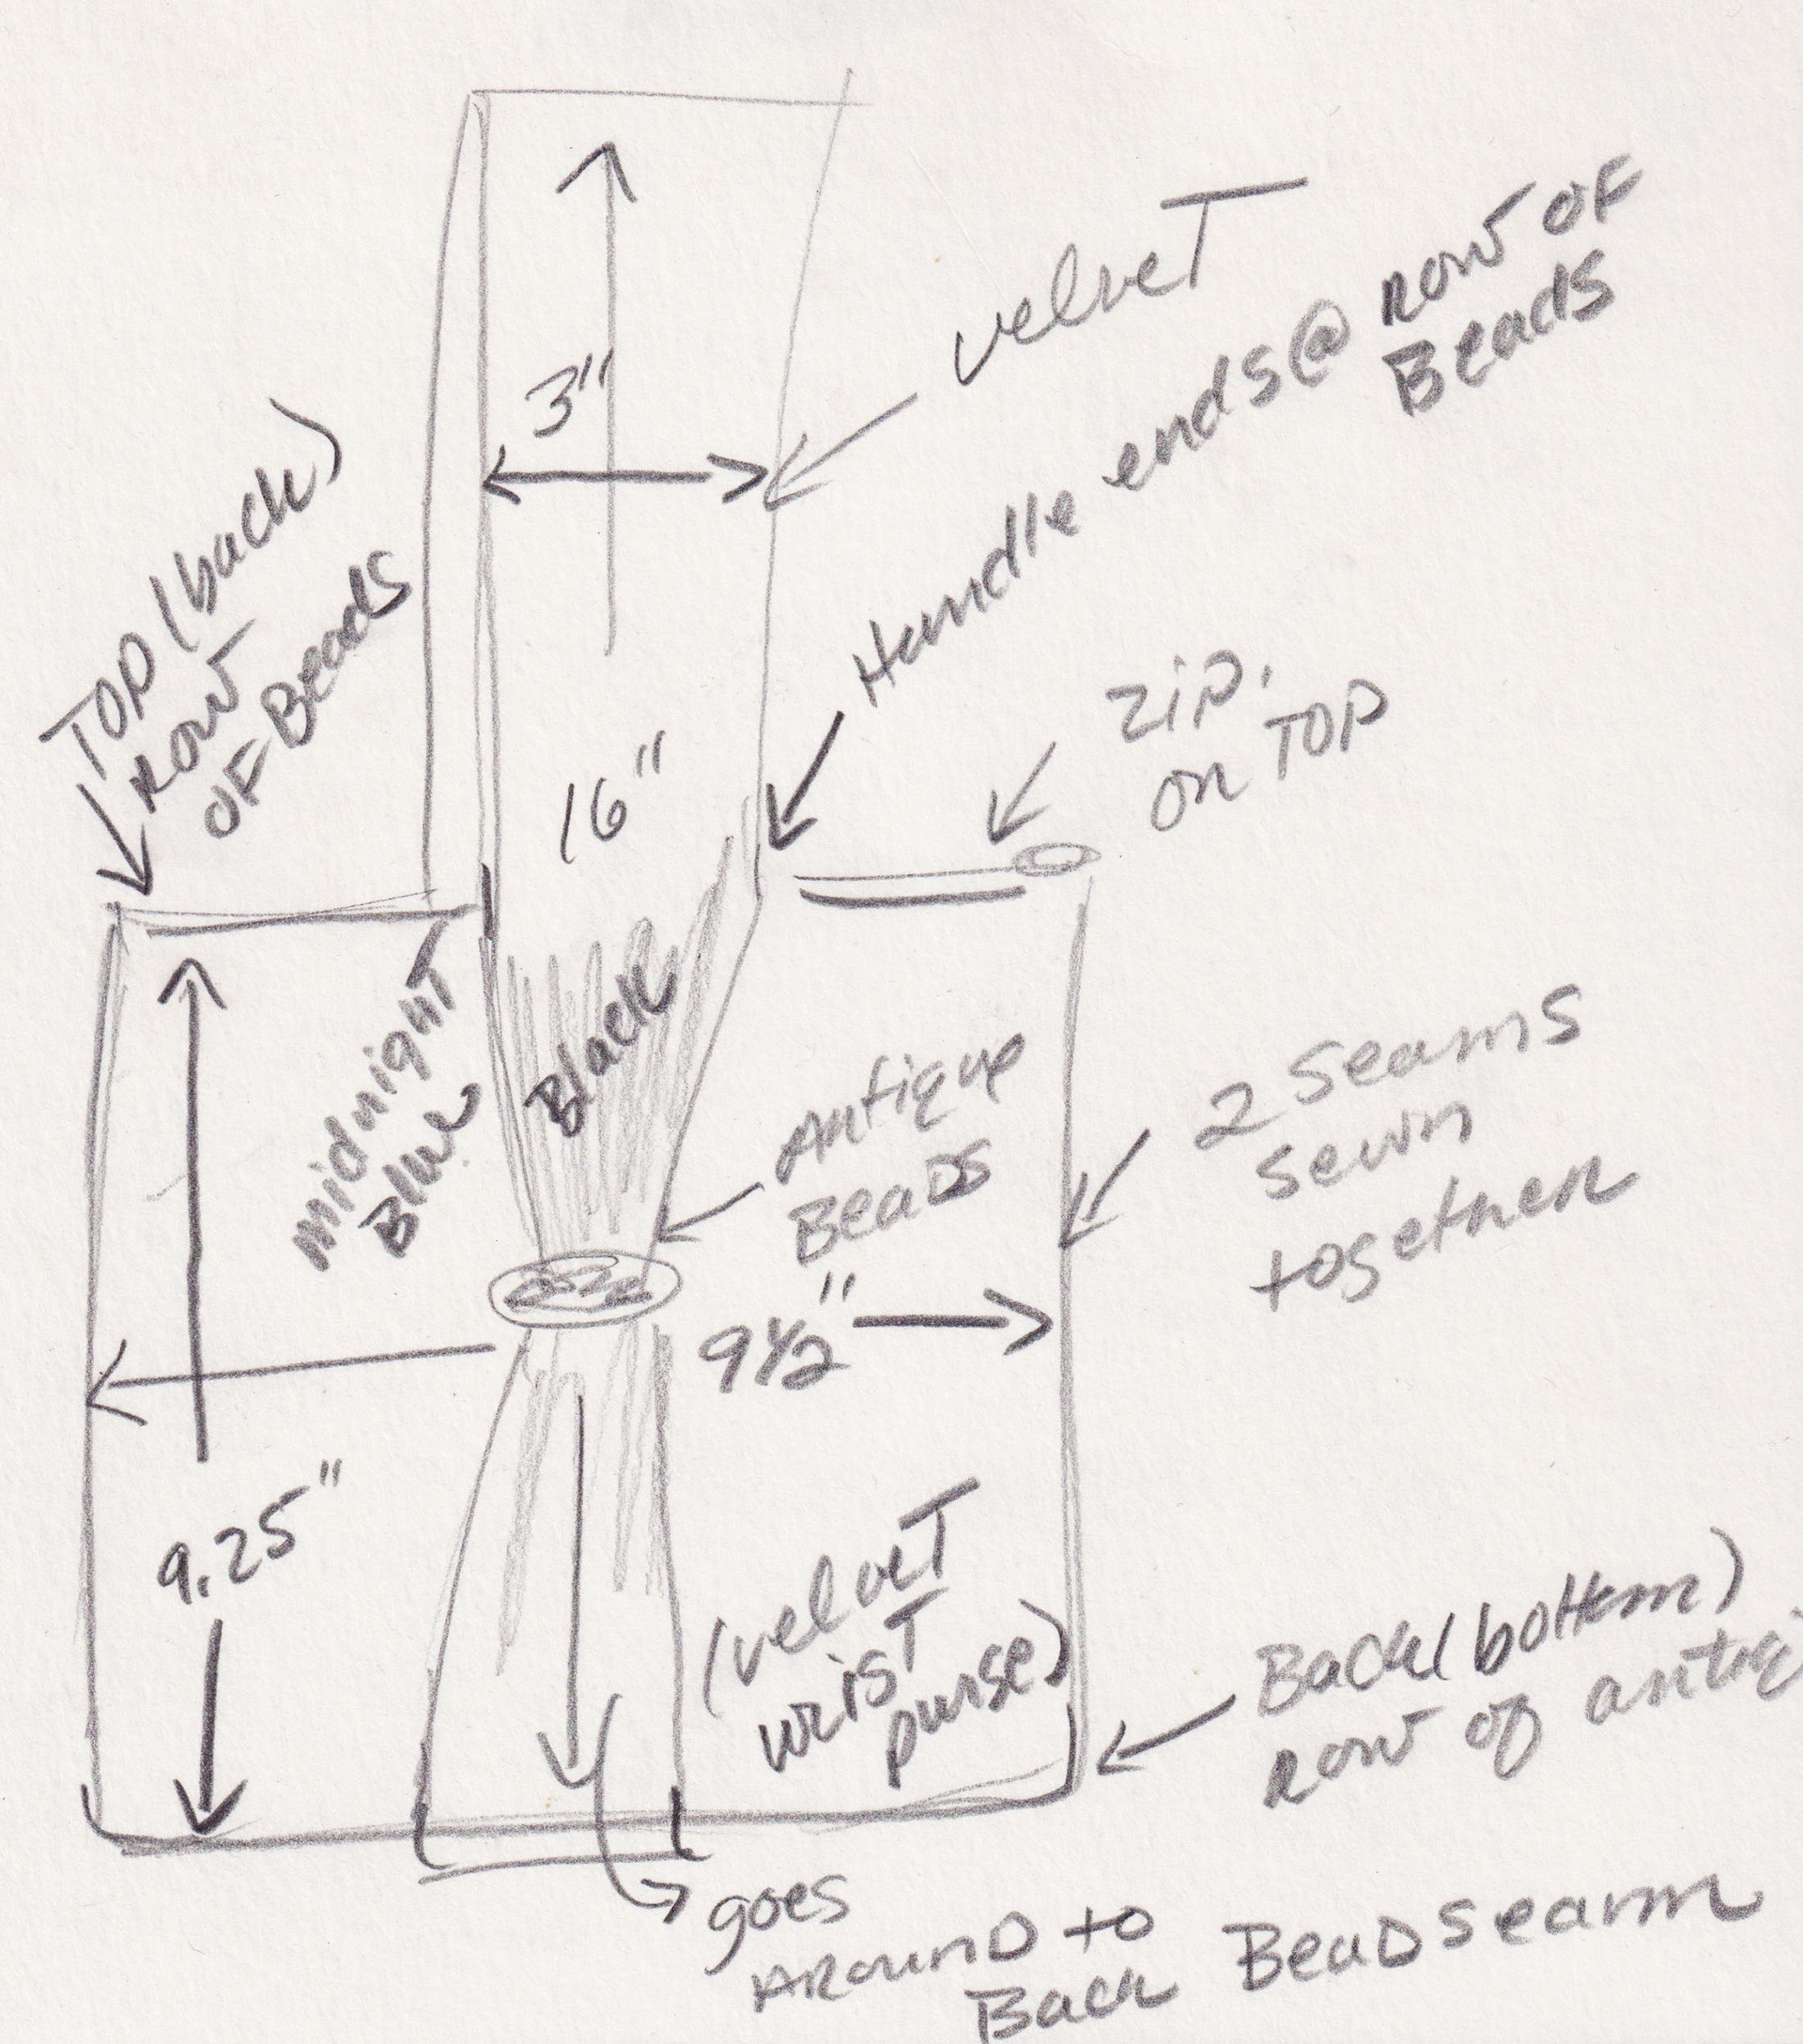 velveT
Handle ends @ row of
Beads
3"
TOP (back)
row
of Beads
zip.
on TOP
16"
midnighT
Blue
Black
Antique
Beads
2 seams
sewn
together
9½"
9.25"
(velveT
wrisT
purse)
Back (bottom)
row of
goes
Around to
Back Bead seam